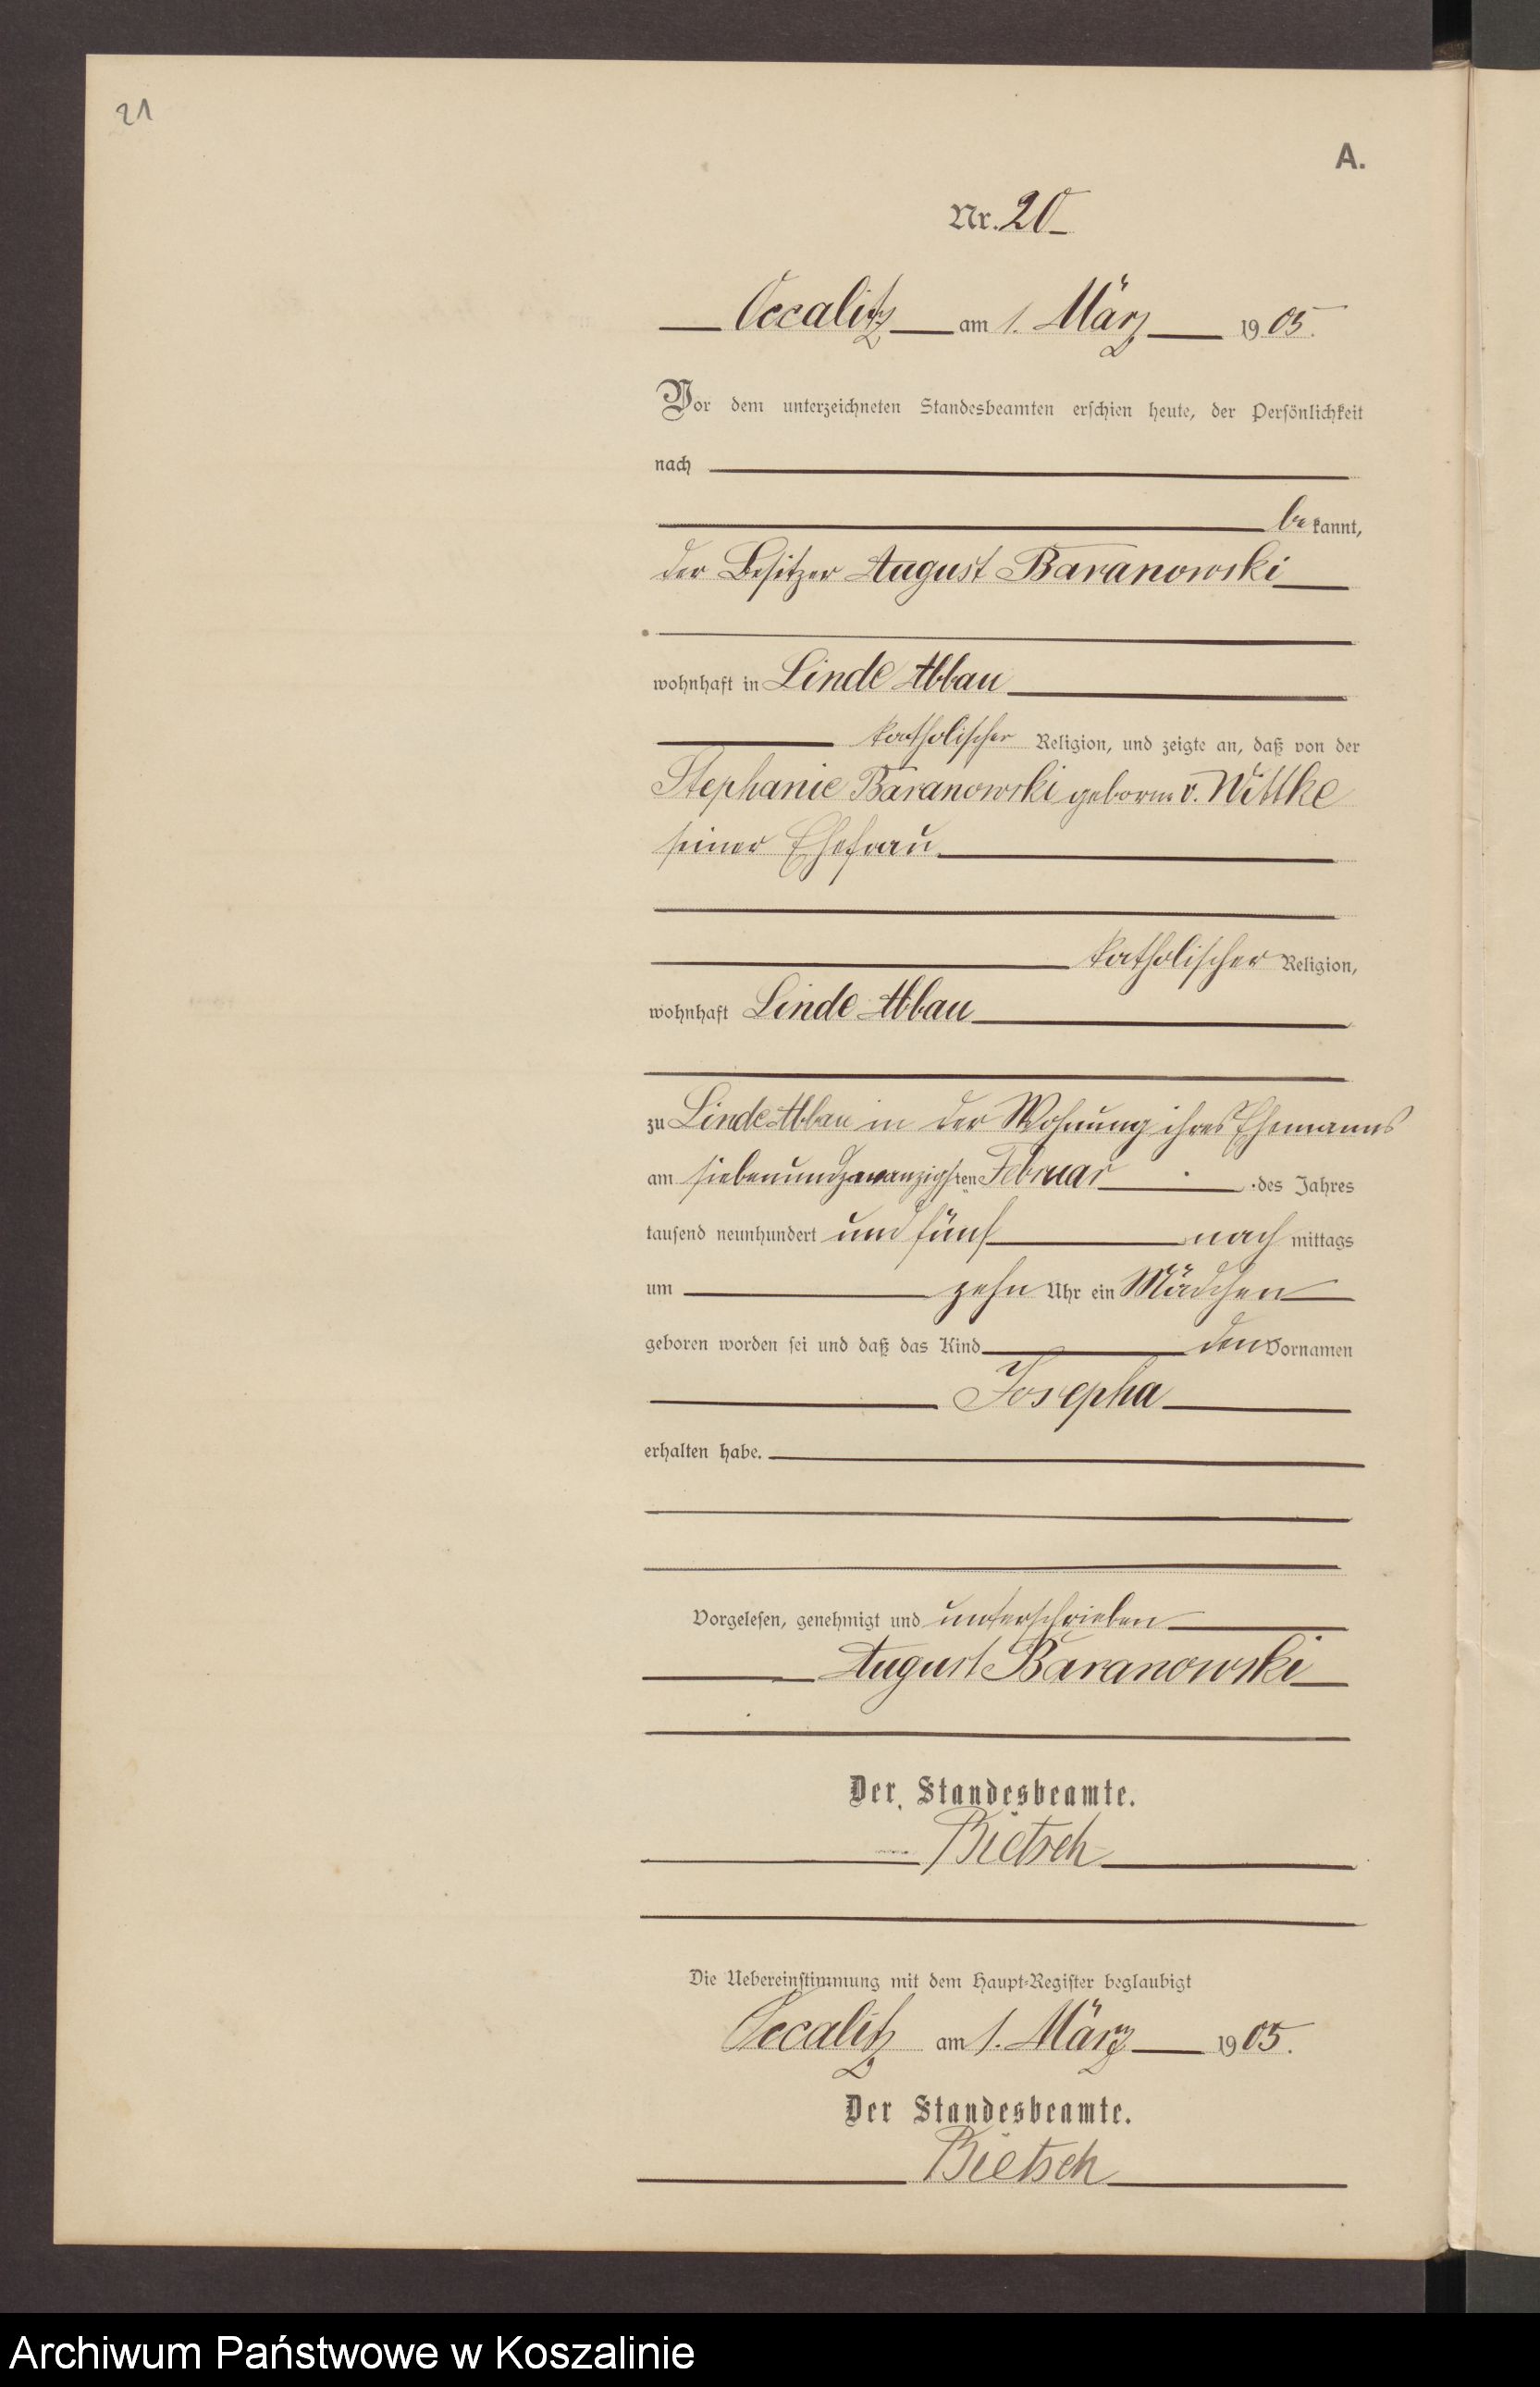 21
A.
Nr. 20
Occalitz am 1. März 1905.
Vor dem unterzeichneten Standesbeamten erschien heute, der Persönlichkeit
nach
be kannt,
der Besitzer August Baranowski
wohnhaft in Linde Abbau
katholischer Religion, und zeigte an, daß von der
Stephanie Baranowski geboren v. Wittke
seiner Ehefrau
katholischer Religion,
wohnhaft Linde Abbau
zu Linde Abbau in der Wohnung ihres Ehemanns
am siebenundzwanzigsten Februar des Jahres
tausend neunhundert und fünf nach mittags
um zehn Uhr ein Mädchen
geboren worden sei und daß das Kind den Vornamen
Josepha
erhalten habe.
Vorgelesen, genehmigt und unterschrieben
August Baranowski
Der Standesbeamte.
Bietsch
Die Uebereinstimmung mit dem Haupt-Register beglaubigt
Occalitz am 1. März 1905.
Der Standesbeamte.
Bietsch
Archiwum Państwowe w Koszalinie